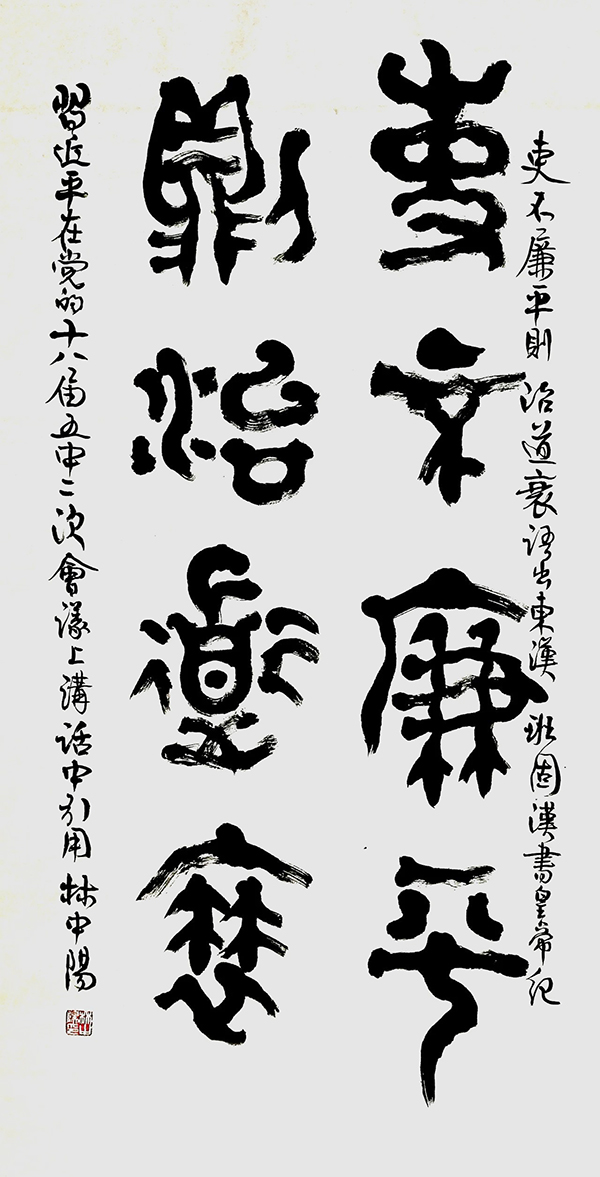 吏不廉平則治道衰語出東漢班固漢書皇帝紀
吏不廉平
則治道衰
習近平在党的十八届五中二次會議上講话中引用 林中陽